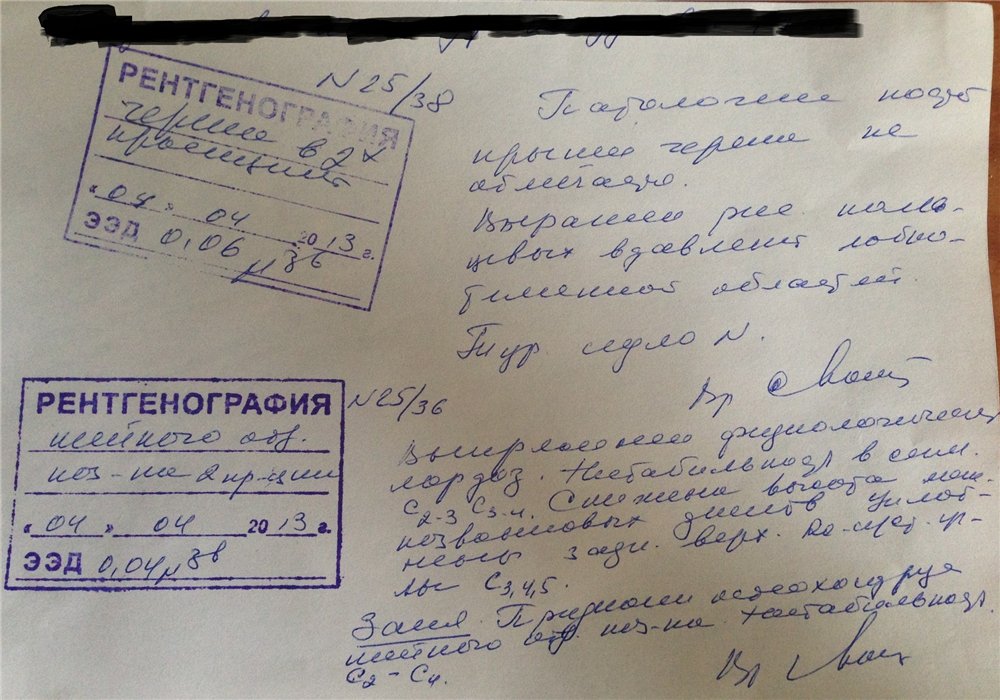 РЕНТГЕНОГРАФИЯ
черепа в 2х
проекциях
«04» 04 2013 г.
ЭЭД 0,06 мЗв
N 25/38
Патологии кост
крыши черепа не
обнаружено.
Выражен рис. паль-
цевых вдавлений лобно-
теменной области.
Тур. седло N.
Вр
РЕНТГЕНОГРАФИЯ
шейного отд.
поз-ка 2 пр-ции
«04» 04 2013 г.
ЭЭД 0,04 мЗв
N25/36
Выпрямлен физиологический
лордоз. Нестабильность в сегм.
C2-3 C3-4. Снижена высота меж-
позвонковых дисков уплот-
нены задн. верх.
лы C3,4,5.
Закл. Признаки остеохондроза
шейного отд. поз-ка. Нестабильность
C2-C4.
Вр